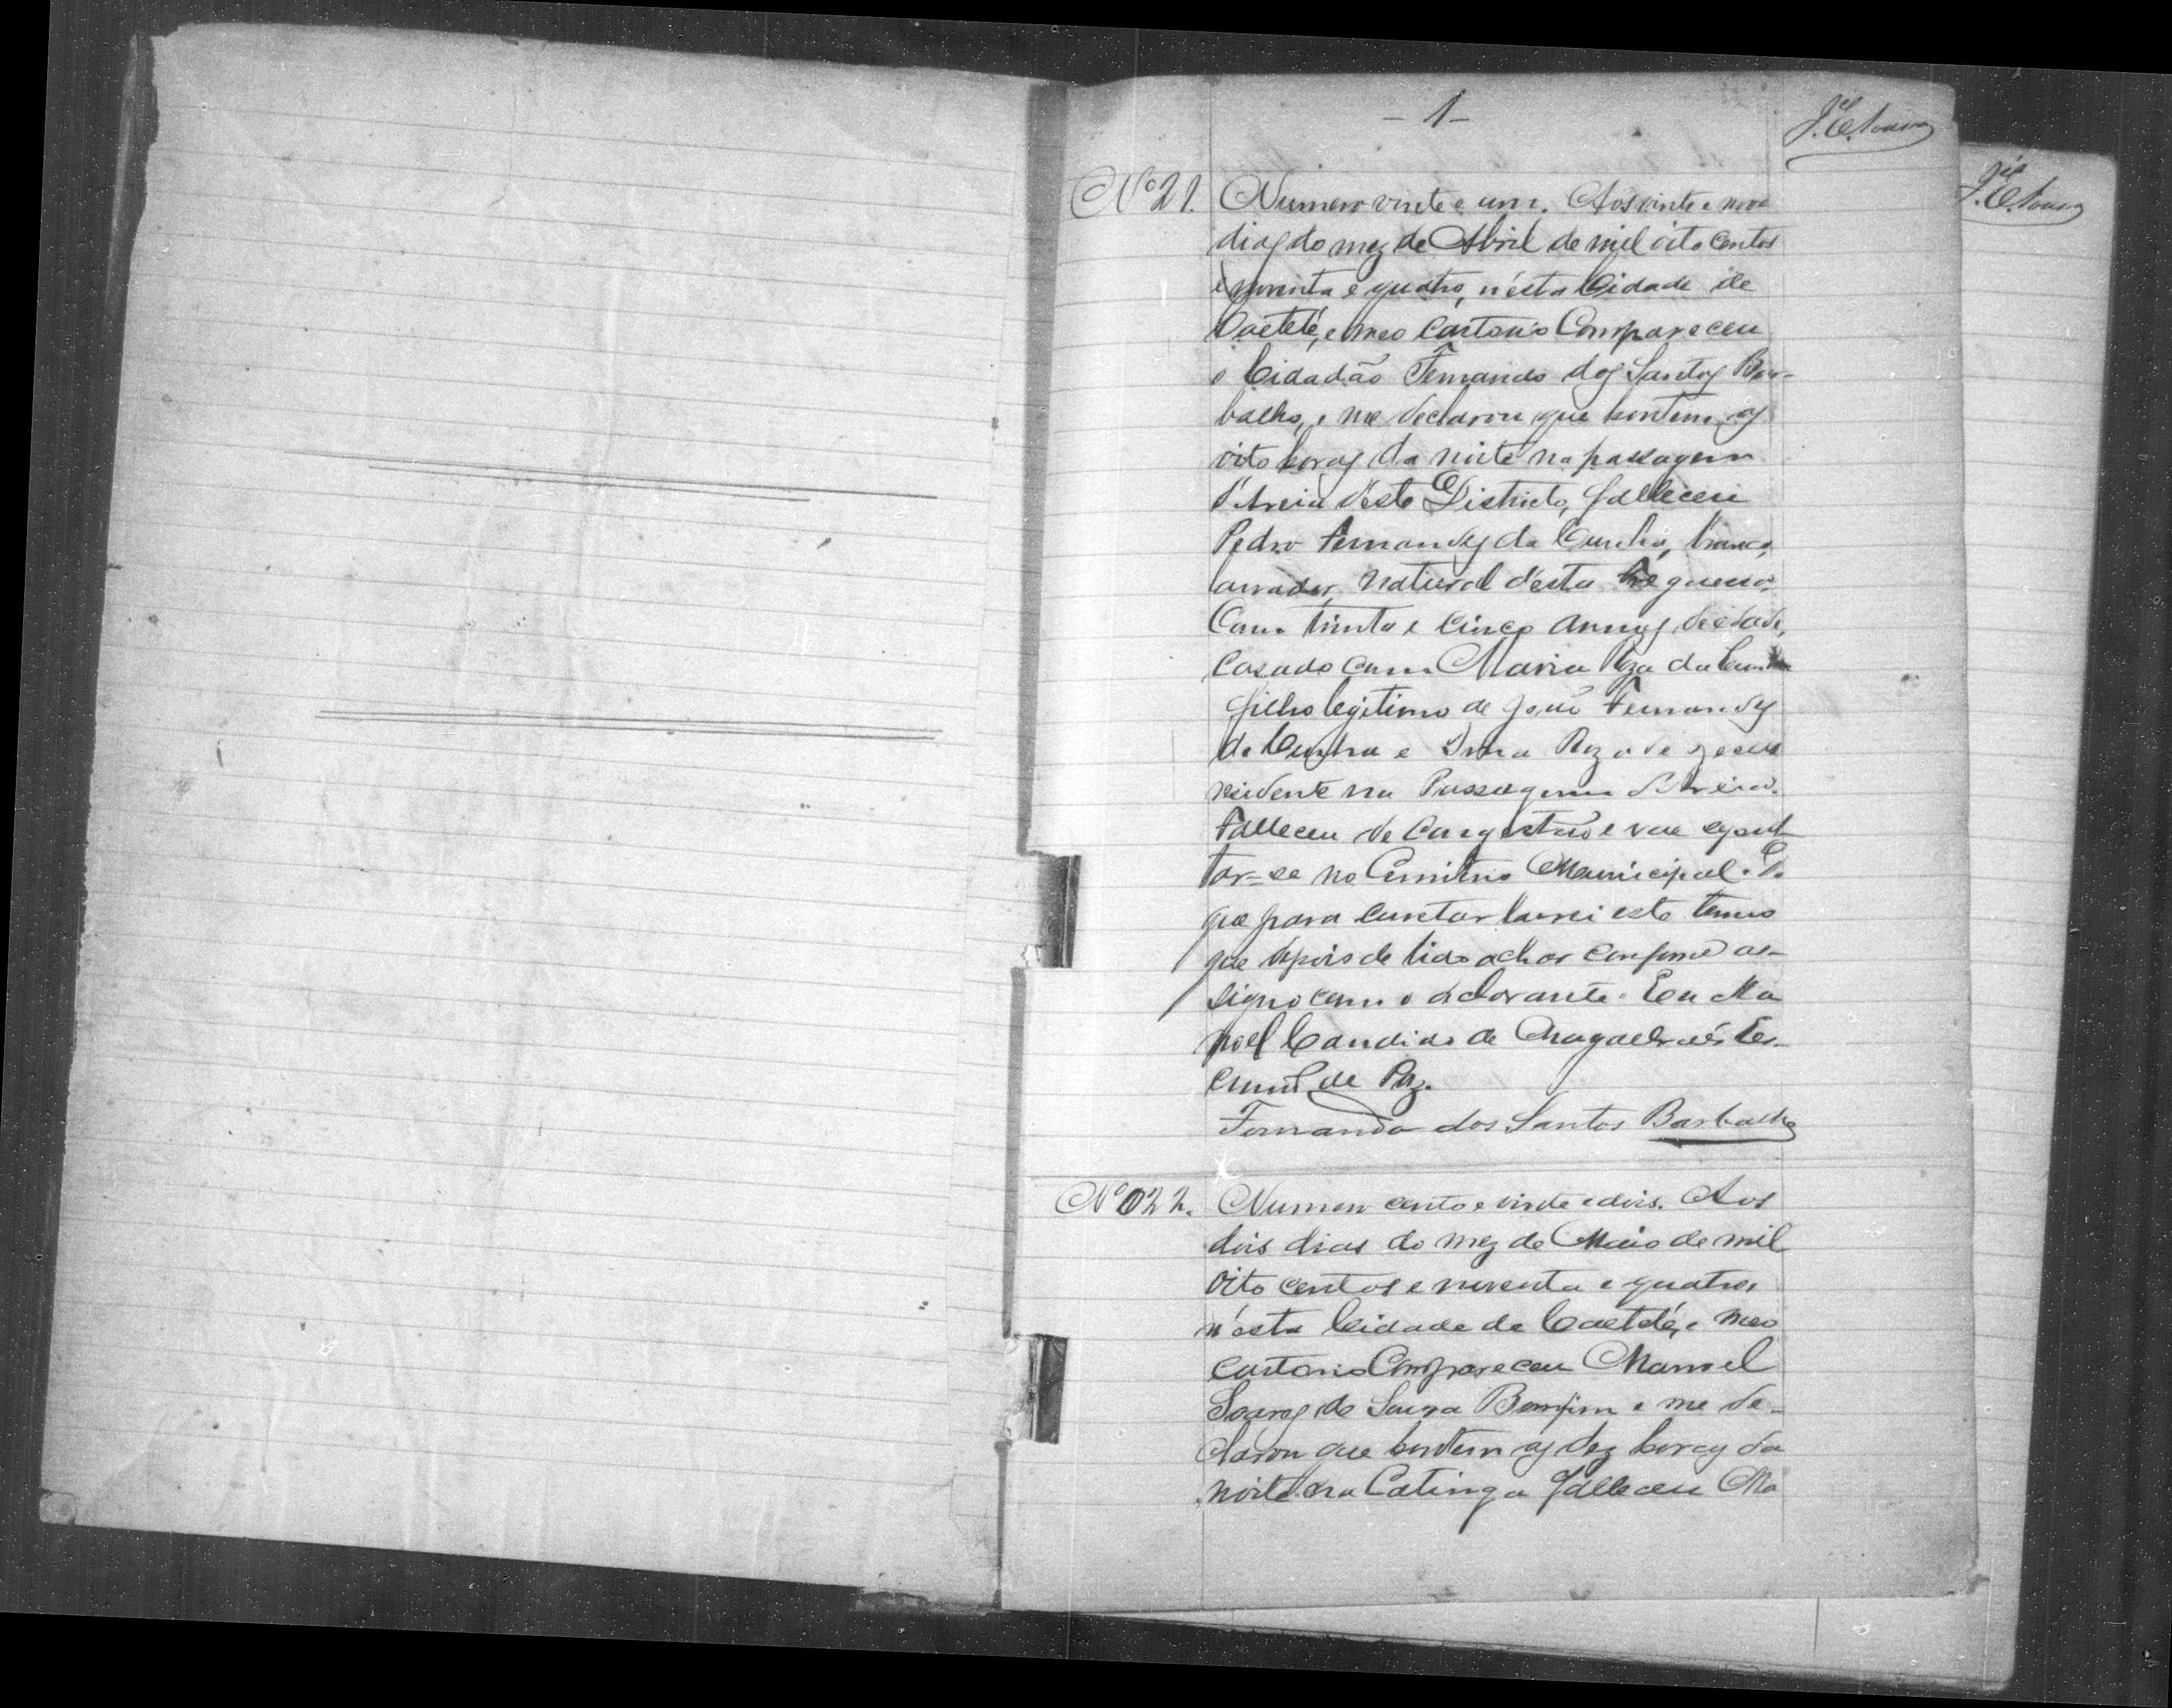 - 1 -
J. C. Souza
J. C. Souza
Nº 21. Numero vinte e um. Aos vinte e nove
dias do mez de Abril de mil oito centos
e noventa e quatro, n'esta Cidade de
Caeteté, e meo Cartorio Compareceu
o Cidadão Fernando dos Santos Bar-
balho, e me declarou que hontem as
oito horas da noite na passagem
d'Areia d'este Districto, falleceu
Pedro Fernandes da Cunha, branco,
lavrador, natural d'esta Freguesia,
Com trinta e cinco annos de edade,
Casado com Maria Roza da Cunha
filho legitimo de João Fernandes
da Cunha e Anna Roza de Jesus
residente na Passagem d'Areia.
Falleceu de Congestão e vae sepul-
tar-se no Cemiterio Municipal. Do
que para constar lavrei este termo
que depois de lido achar conforme as-
signo com o declarante. Eu Ma
noel Candido de Magalhães Es-
crivão de Paz.
Fernando dos Santos Barbalho
Nº 022. Numero cento e vinte e dois. Aos
dois dias do mez de Maio de mil
oito centos e noventa e quatro,
n'esta Cidade de Caeteté, e meo
Cartorio Compareceu Manoel
Soares de Souza Bomfim e me de-
clarou que hontem as dez horas da
noite na Catinga falleceu Ma